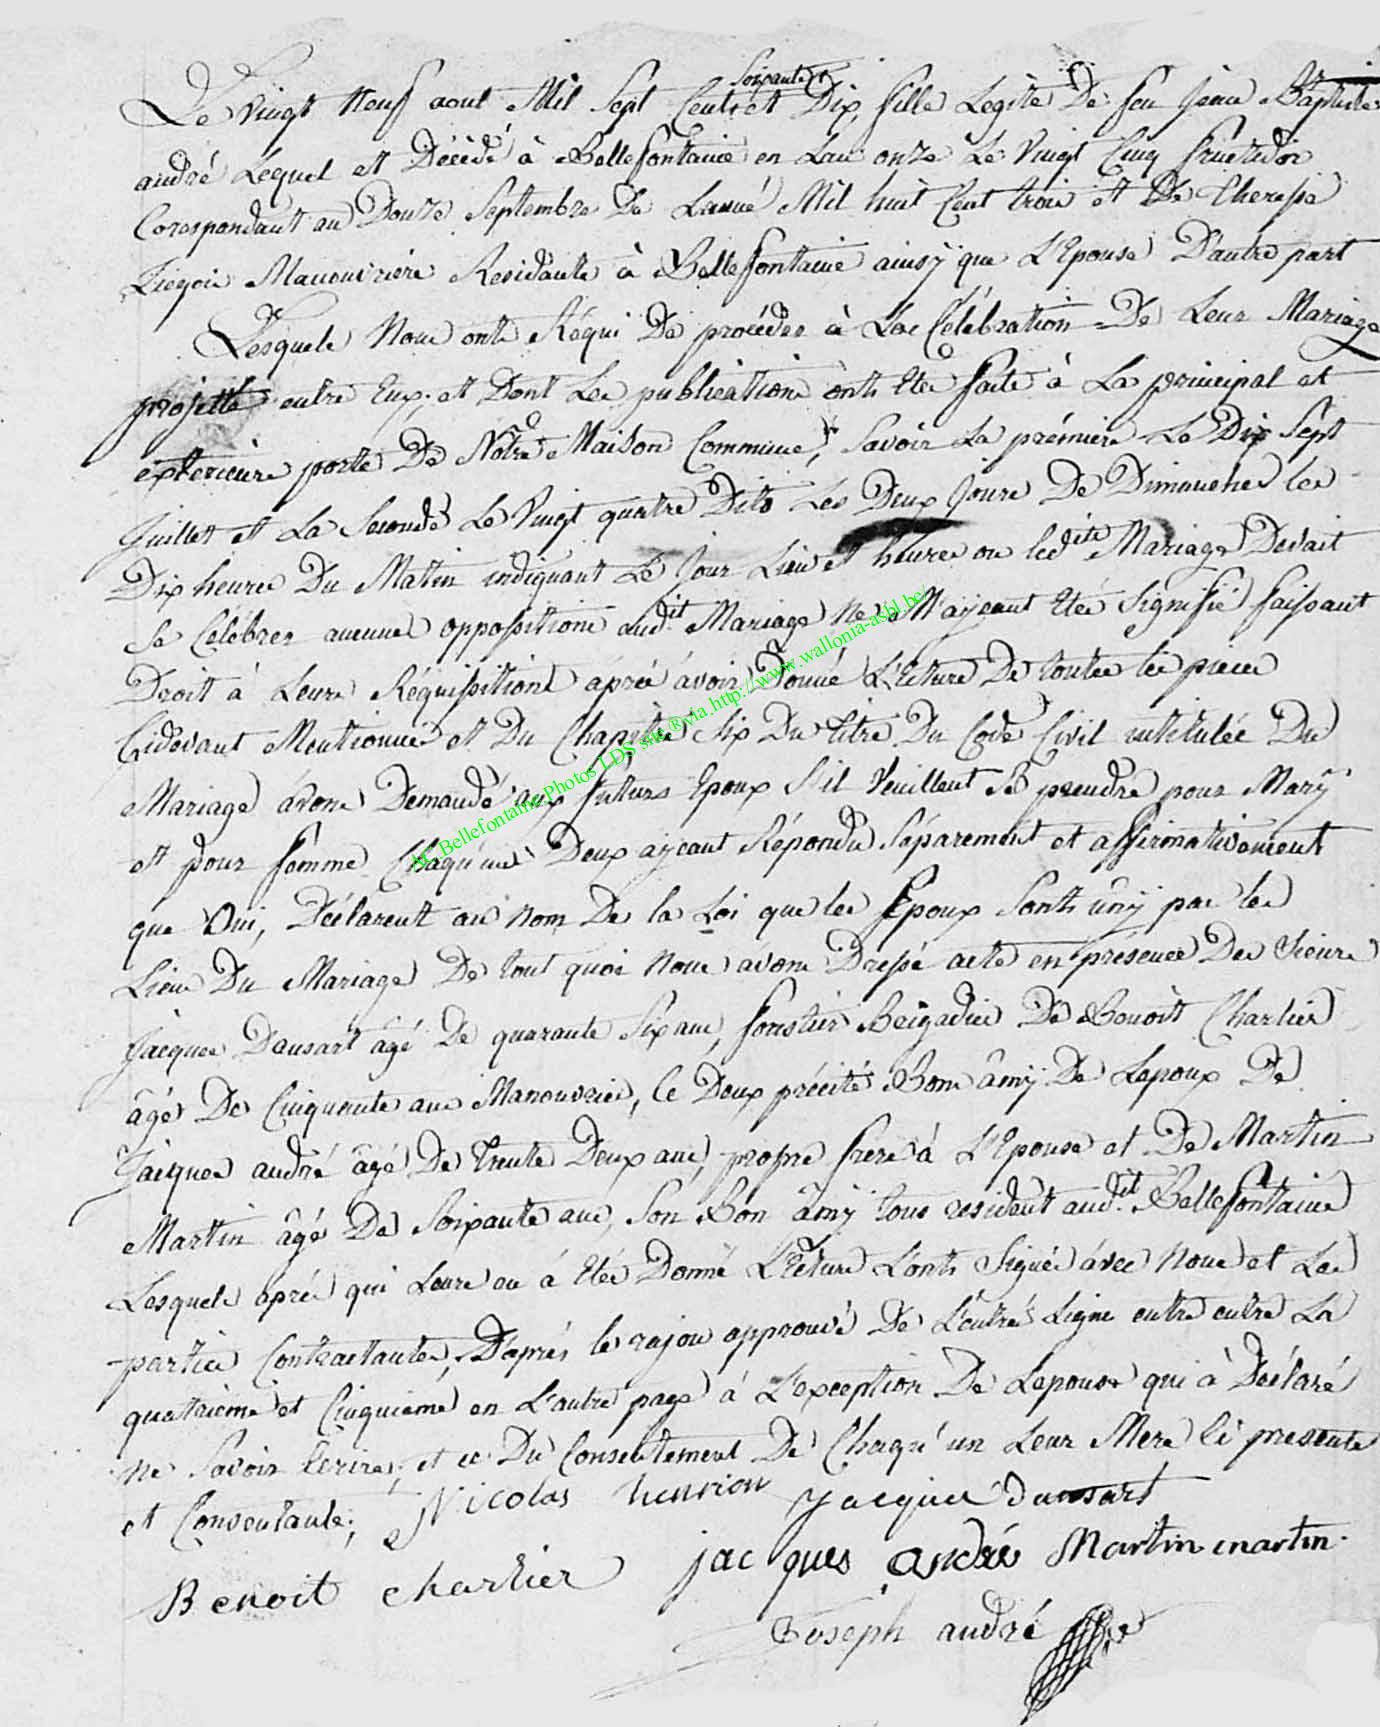 Soixante
Le Vingt Neuf aout Mil Sept Cents et Dix fille Legite De feu Jean Baptiste
andré Lequel et Décédé à Bellefontaine en Lan onze Le Vingt Cinq fructidor
Corespondant au Douze Septembre De Lanné Mil huit Cent trois et De Therese
Liegois Manouvriere Residante à Bellefontaine ainsÿ que L'Epouse D'autre part
Lesquels Nous onts Réqui De procéder à La Célébration De Leur Mariage
projetté entre Eux, et Dont Les publications onts Etés faite à La principal et
exterieure porte De Nôtre Maison Commune, Savoir La prémiere Le Dix Sept
Juillet et La Seconde Le Vingt quatre Dito Les Deux Jours De Dimanches les
Dix heures Du Matin indiquant Le Jour Lieu et heures ou ledit Mariage Devait
Se Célébrer aucunes oppositions audit Mariage Ne Nayeant Etés Signifié faisant
Droit à Leurs Réquisitions áprés ávoir Donné L'Ecture De toutes les pieces
Cidevant Mentionnée et Du Chapitre Six Du titre Du Code Civil intitulée Du
Mariage ávons Demandé aux futurs Epoux S'il Veuillent Se prendre pour Marÿ
et pour femme Chaqu'un Deux ayeant Répondu Séparement et affirmativement
que Oui, Déclarent au Nom De la Loi que les Epoux Sonts ûnÿ par les
Liens Du Mariage De tout quoi Nous avons Dressé acte en présence Des Sieurs
Jacques Dansart âgé De quarante Six ans, forstier Brigadier De Benoit Charlier
âgé De Cinquante ans Manouvrier, Ce Deux précité Bons âmÿ De Lepoux De
Jacques andré âgé De trente Deux ans, propre frere á L'Epouse et De Martin
Martin âgé De Soixante ans, Son Bon âmÿ tous resident audit Bellefontaine
Lesquels áprés qui Leurs en á Etés Donné L'Ecture L'onts Signés ávec Nous et Les
parties Contractantes, D'aprés le rajou approuvé De L'entre Ligne entre entre La
quatriéme et Cinquiéme en L'autre page á L'exception De Lepouse qui à Déclaré
Ne Savoir Ecrire, et ce Du Consentement De Chaqu'un Leur Mere Ci presente
et Consentante; Nicolas henrion Jacques dansart
Benoit charlier jacques andré Martin martin
Joseph andré
AC Bellefontaine Photos LDS site ® via http://www.wallonia-asbl.be/